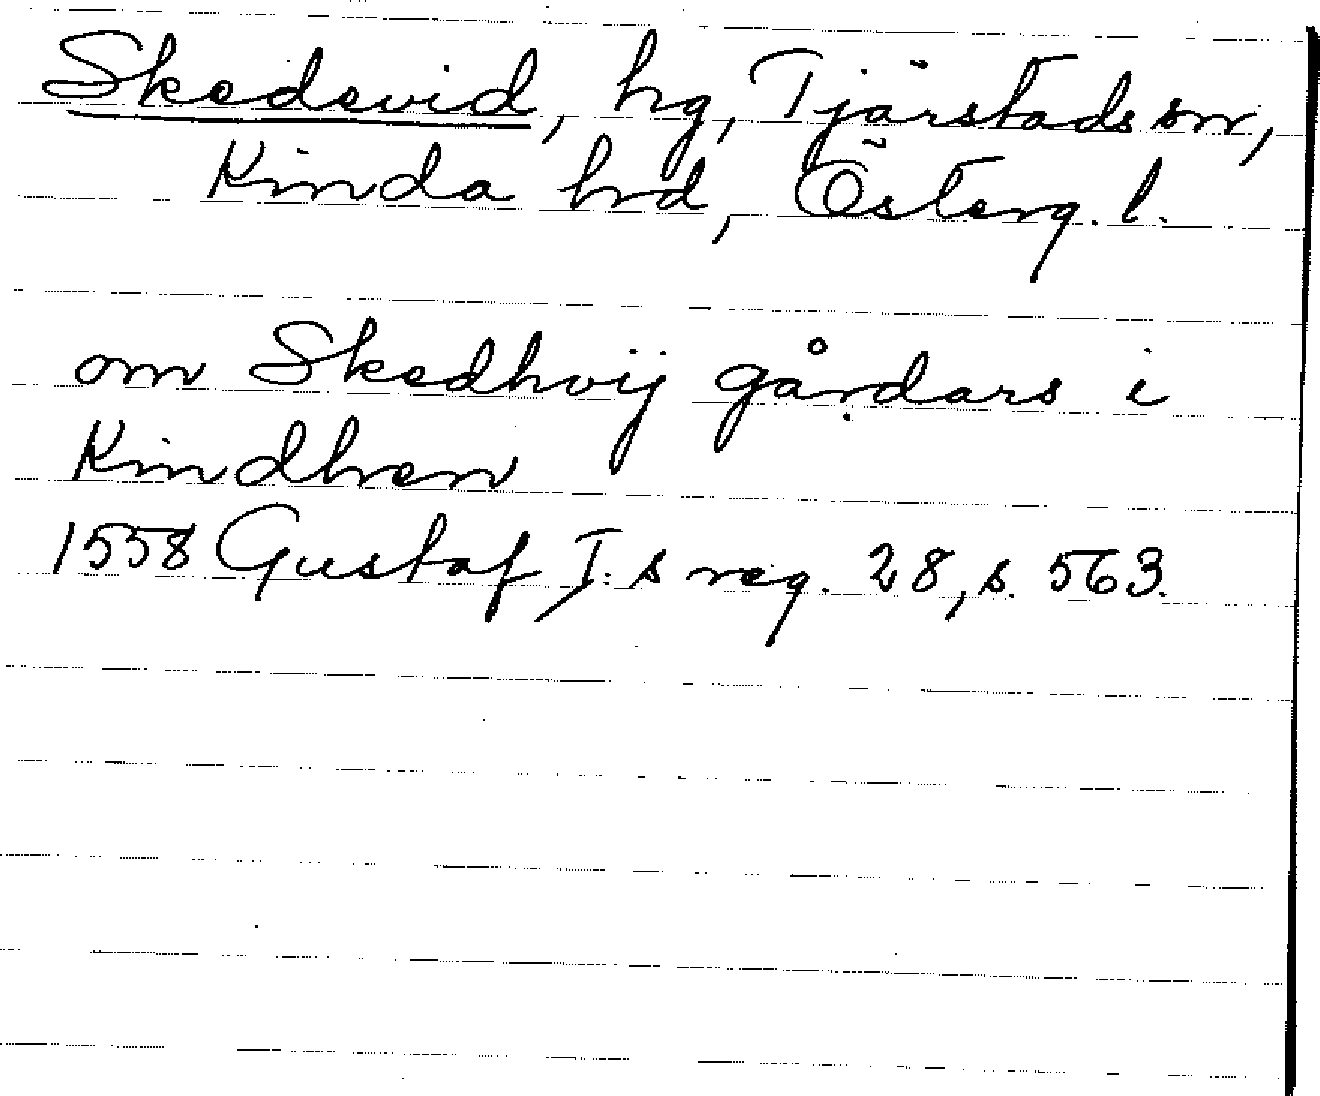 Skedevid, hg, Tjärstads sn,
Kinda hrd, Österg. l.
om Skedhvij gårdars i
Kindhen
1558 Gustaf I:s reg. 28, s. 563.